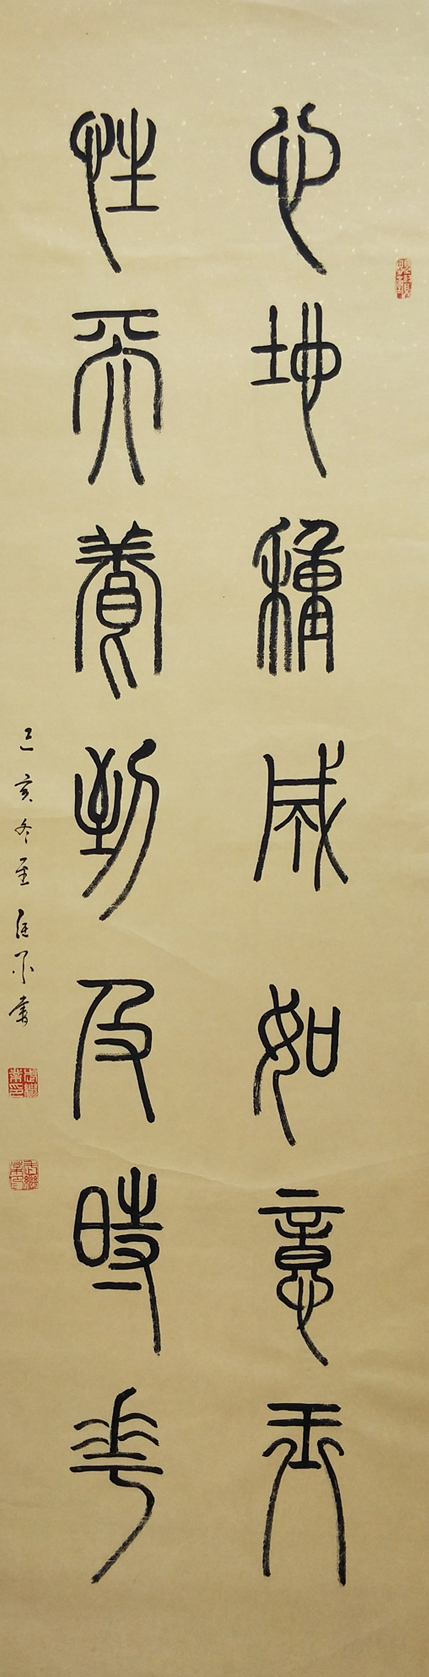 心地種成如意玉
性天養到及時花
己亥冬至 書